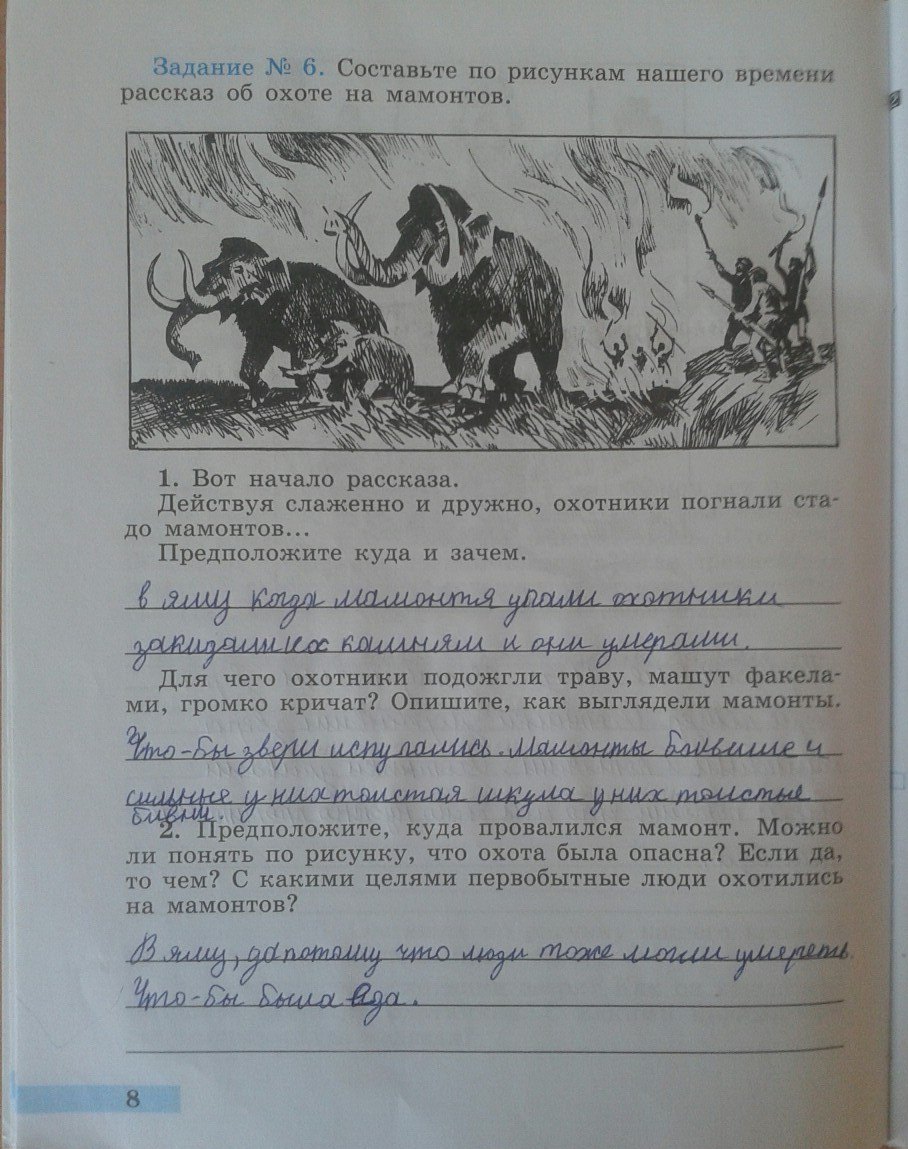 Задание № 6. Составьте по рисункам нашего времени
рассказ об охоте на мамонтов.
1. Вот начало рассказа.
Действуя слаженно и дружно, охотники погнали ста-
до мамонтов...
Предположите куда и зачем.
в яму когда мамонтя упали охотники
закидали их камням и они умерами.
Для чего охотники подожгли траву, машут факела-
ми, громко кричат? Опишите, как выглядели мамонты.
Что-бы звери испугались. Мамонты большие и
сильные у них толстая шкула у них толстые
бивни.
2. Предположите, куда провалился мамонт. Можно
ли понять по рисунку, что охота была опасна? Если да,
то чем? С какими целями первобытные люди охотились
на мамонтов?
В яму, да потому что люди тоже могли умереть.
Что-бы была еда.
8